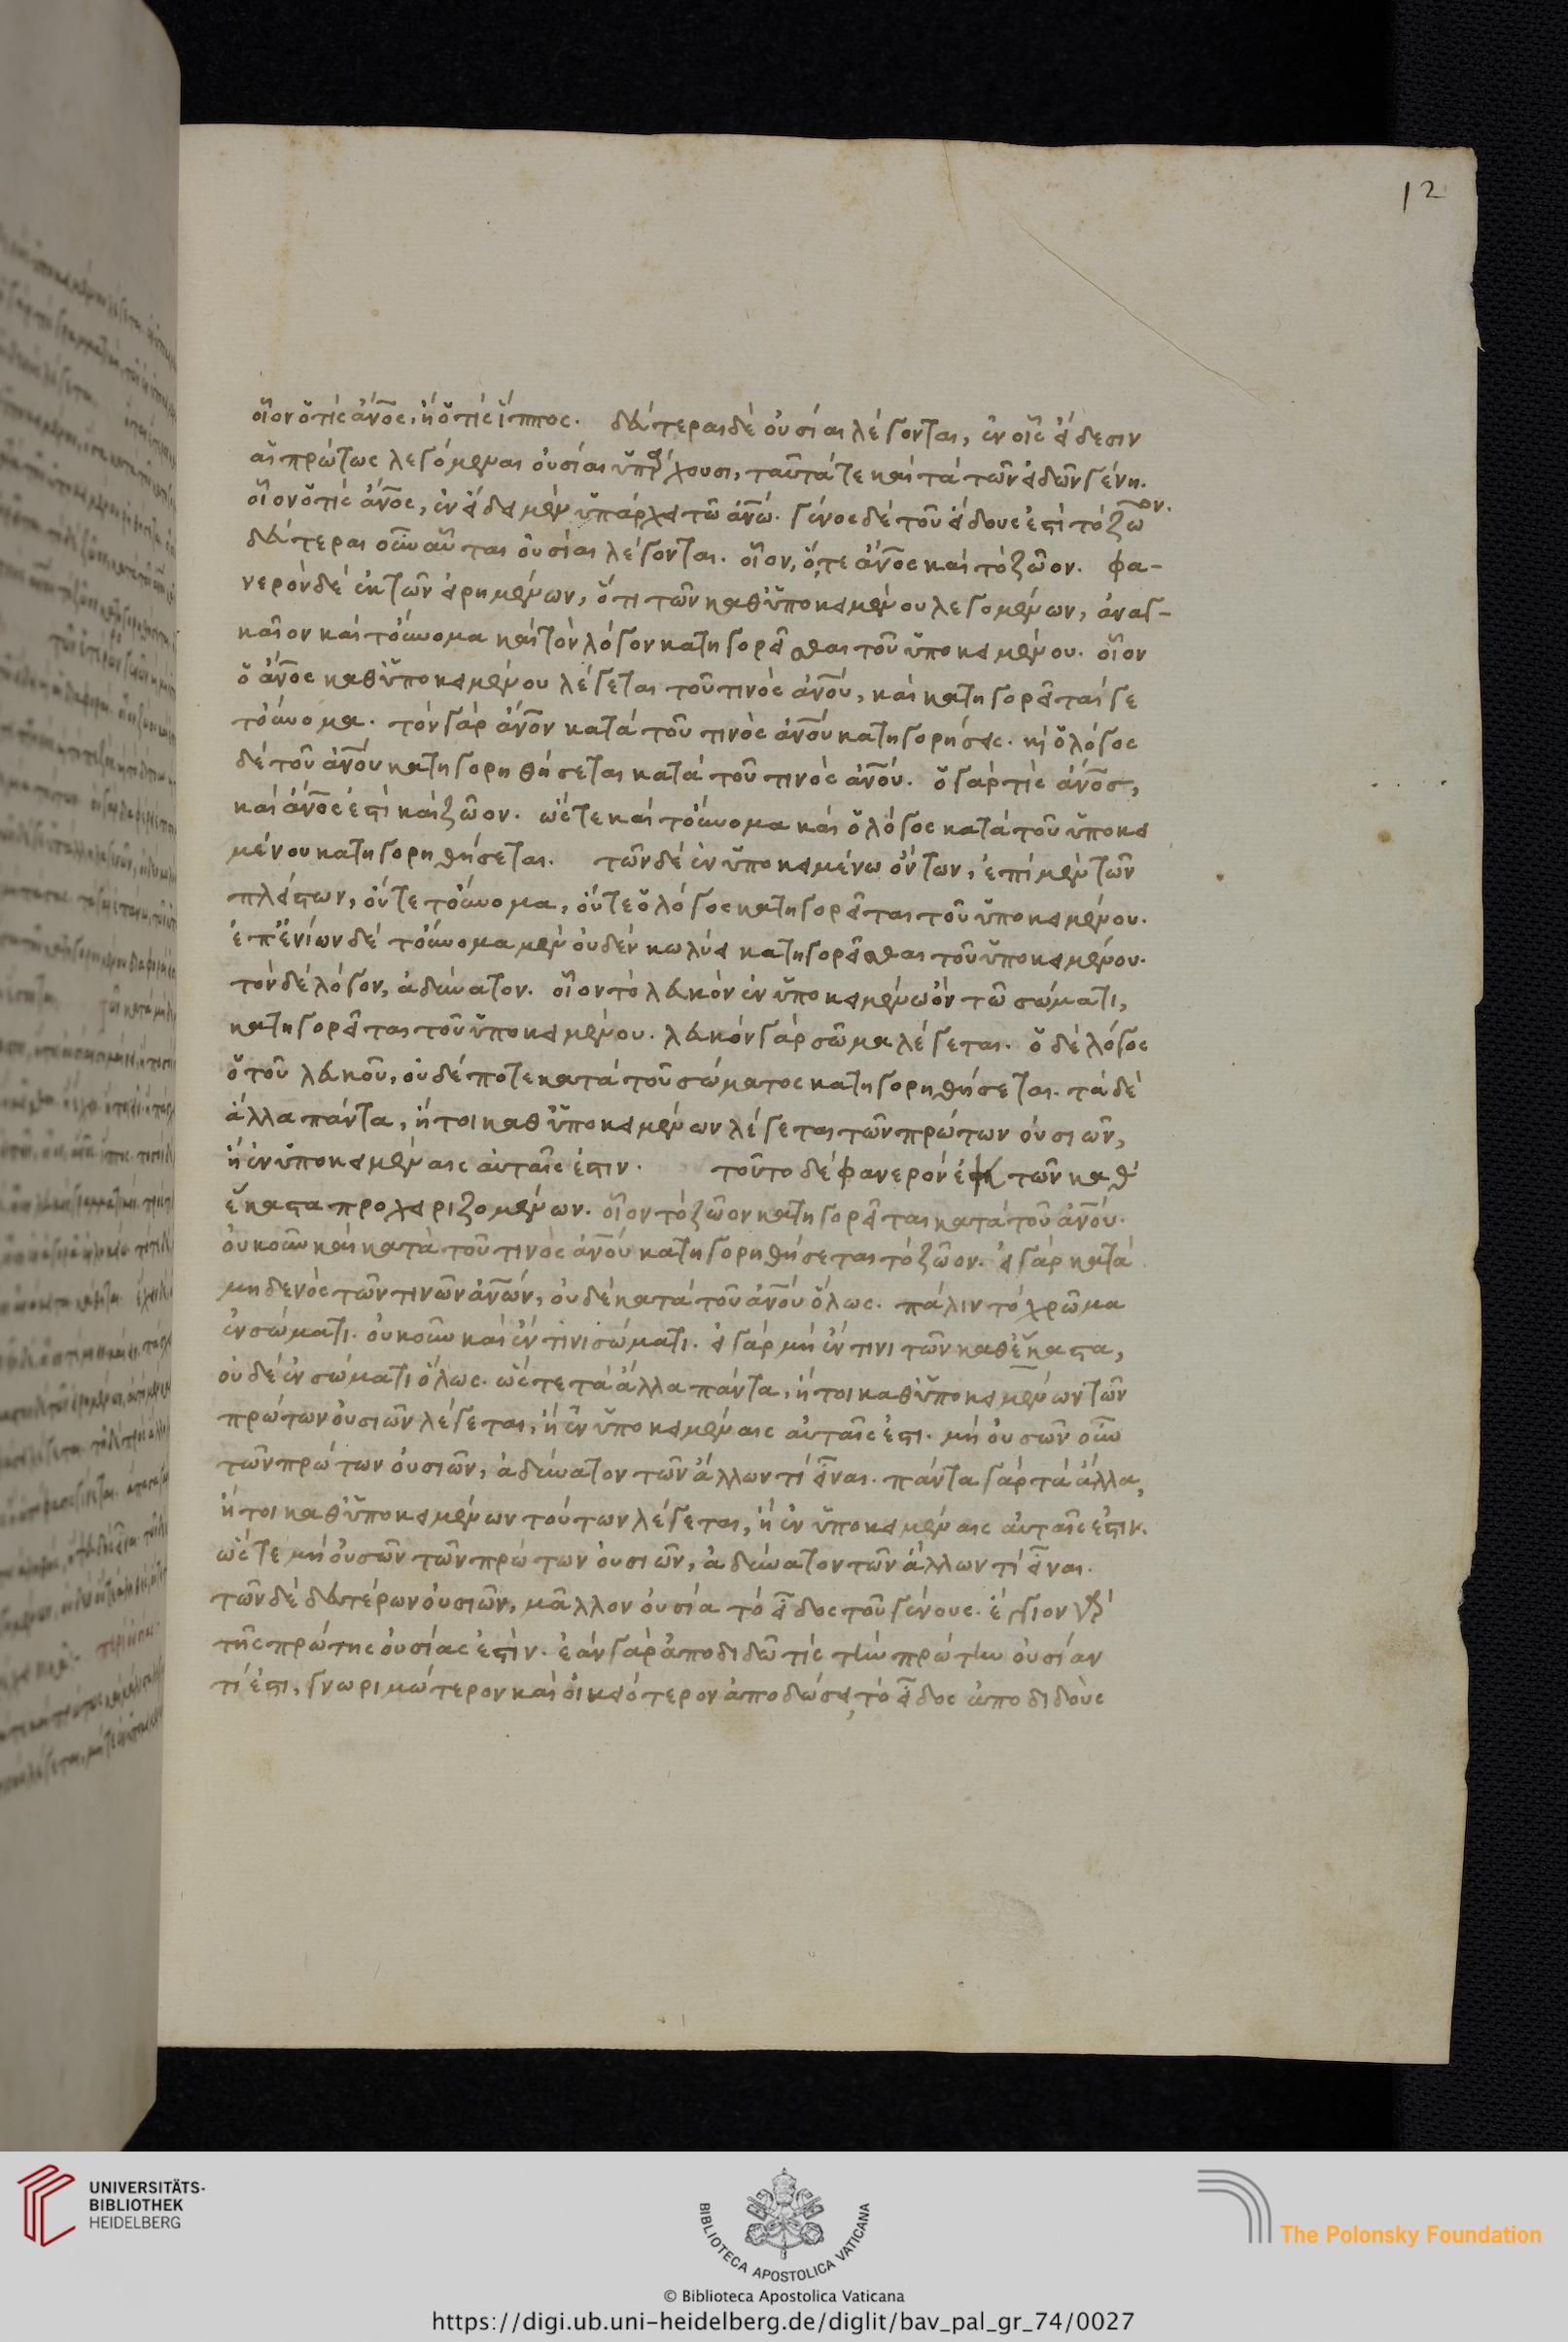 12
οἷον ὅ τὶς ἄνος, ἢ ὅ τὶς ἵππος. δεύτεραι δὲ οὐσίαι λέγονται, ἐν οἷς εἴδεσιν
αἱ πρώτως λεγόμεναι οὐσίαι ὑπάρχουσι, ταῦτά τε καὶ τὰ τῶν εἰδῶν γένη.
οἷον ὅ τὶς ἄνος, ἐν εἴδει μὲν ὑπάρχει τῶ ἀνω. γένος δὲ τοῦ εἴδους ἐστὶ τὸ ζῶον.
δεύτεραι οὖν αὗται οὐσίαι λέγονται. οἷον, ὅ,τε ἄνος καὶ τὸ ζῶον. φα-
νερὸν δὲ ἐκ τῶν εἰρημένων, ὅτι τῶν καθ' ὑποκειμένου λεγομένων, ἀναγ-
καῖον καὶ τὄυνομα καὶ τὸν λόγον κατηγορεῖσθαι τοῦ ὑποκειμένου. οἷον
ὁ ἄνος καθ' ὑποκειμένου λέγεται τοῦ τινὸς ἀνου, καὶ κατηγορεῖταί γε
τὄυνομα. τὸν γὰρ ἄνον κατὰ τοῦ τινὸς ἀνου κατηγορήσεις. κὶ ὁ λόγος
δὲ τοῦ ἀνου κατηγορηθήσεται κατὰ τοῦ τινὸς ἀνου. ὁ γάρ τὶς ἄνος,
καὶ ἄνος ἐστὶ καὶ ζῶον. ὥστε καὶ τὄυνομα καὶ ὁ λόγος κατὰ τοῦ ὑποκει
μένου κατηγορηθήσεται. τῶν δὲ ἐν ὑποκειμένω ὄντων, ἐπὶ μὲν τῶν
πλείστων, οὔτε τὄυνομα, οὔτε ὁ λόγος κατηγορεῖται τοῦ ὑποκειμένου.
ἐπ' ἐνίων δὲ τὄυνομα μὲν οὐδὲν κωλύει κατηγορεῖσθαι τοῦ ὑποκειμένου.
τὸν δὲ λόγον, ἀδύνατον. οἷον τὸ λευκὸν ἐν ὑποκειμένω ὂν τῶ σώματι,
κατηγορεῖται τοῦ ὑποκειμένου. λευκὸν γὰρ σῶμα λέγεται. ὁ δὲ λόγος
ὁ τοῦ λευκοῦ, οὐδέποτε κατὰ τοῦ σώματος κατηγορηθήσεται. τὰ δὲ
ἄλλα πάντα, ἤτοι καθ' ὑποκειμένων λέγεται τῶν πρώτων οὐσιῶν,
ἢ ἐν ὑποκειμέναις αὐταῖς ἐστιν. τοῦτο δὲ φανερὸν ἐκ τῶν καθ'
ἕκαστα προχειριζομένων. οἷον τὸ ζῶον κατηγορεῖται κατὰ τοῦ ἀνου.
οὐκοῦν καὶ κατὰ τοῦ τινὸς ἀνου κατηγορηθήσεται τὸ ζῶον. εἰ γὰρ κατὰ
μηδενὸς τῶν τινῶν ἀνων, οὐδὲ κατὰ τοῦ ἀνου ὅλως. πάλιν τὸ χρῶμα
ἐν σώματι. οὐκοῦν καὶ ἔν τινι σώματι. εἰ γὰρ μὴ ἔν τινι τῶν καθ' ἕκαστα,
οὐδὲ ἐν σώματι ὅλως. ὥστε τὰ ἄλλα πάντα, ἤτοι καθ' ὑποκειμένων τῶν
πρώτων οὐσιῶν λέγεται, ἢ ἐν ὑποκειμέναις αὐταῖς ἐστι. μὴ οὐσῶν οὖν
τῶν πρώτων οὐσιῶν, ἀδύνατον τῶν ἄλλων τὶ εἶναι. πάντα γὰρ τὰ ἄλλα,
ἤτοι καθ' ὑποκειμένων τούτων λέγεται, ἢ ἐν ὑποκειμέναις αὐταῖς ἐστιν.
ὥστε μὴ οὐσῶν τῶν πρώτων οὐσιῶν, ἀδύνατον τῶν ἄλλων τὶ εἶναι.
τῶν δὲ δευτέρων οὐσιῶν, μᾶλλον οὐσία τὸ εἶδος τοῦ γένους. ἔγγιον γὰρ
τῆς πρώτης οὐσίας ἐστὶν. ἐὰν γὰρ ἀποδιδῶ τὶς τὴν πρώτην οὐσίαν
τί ἐστι, γνωριμώτερον καὶ οἰκειότερον ἀποδώσει, τὸ εἶδος ἀποδιδοὺς
UNIVERSITÄTS-
BIBLIOTHEK
HEIDELBERG
BIBLIOTECA APOSTOLICA VATICANA
The Polonsky Foundation
© Biblioteca Apostolica Vaticana
https://digi.ub.uni-heidelberg.de/diglit/bav_pal_gr_74/0027